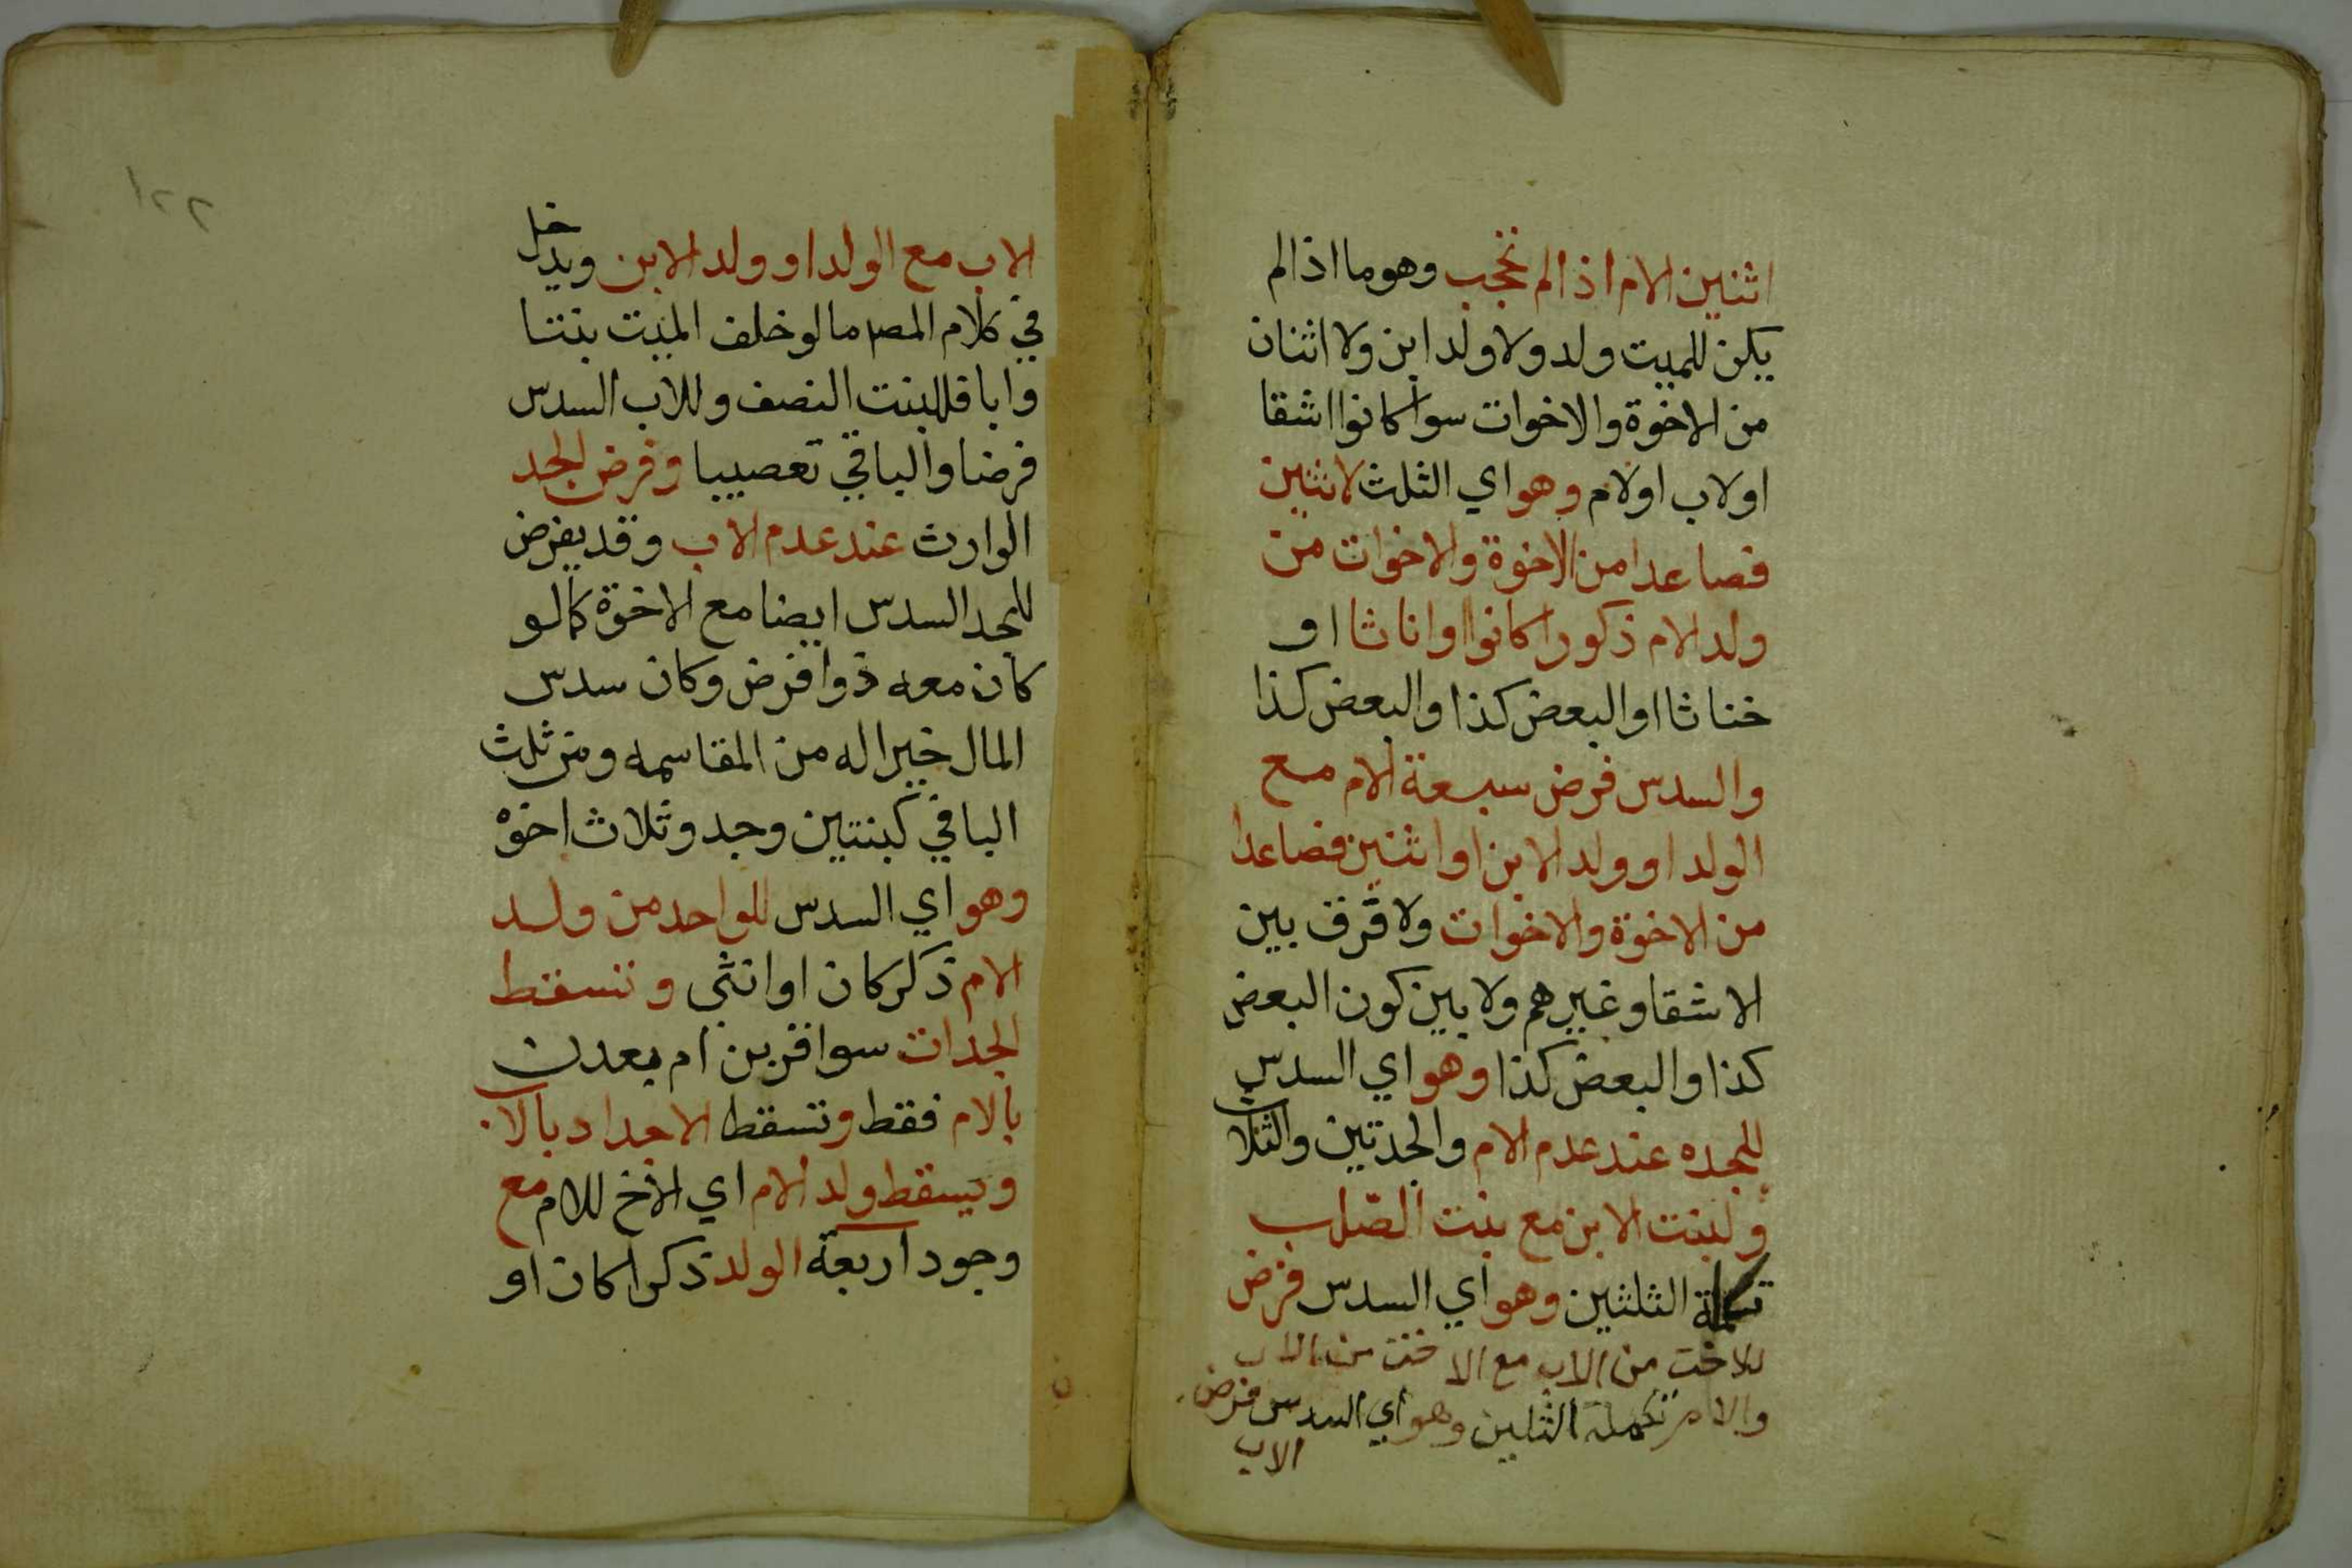 اثنين الام اذا لم تحجب وهو ما اذا لم
يكن للميت ولد ولا ولد ابن ولا اثنان
من الاخوة والاخوات سوا كانوا اشقا
او لاب او لام وهو اي الثلث لاثنين
فصاعدا من الاخوة والاخوات من
ولد الام ذكورا كانوا او اناثا او
خناثا او البعض كذا والبعض كذا
والسدس فرض سبعة الام مع
الولد او ولد الابن او اثنين فصاعدا
من الاخوة والاخوات ولا فرق بين
الاشقا وغيرهم ولا بين كون البعض
كذا والبعض كذا وهو اي السدس
للجده عند عدم الام والجدتين والثلاث
ولبنت الابن مع بنت الصلب
تكملة الثلثين وهو اي السدس فرض
للاخت من الاب مع الاخت من الاب
والام تكملة الثلثين وهو اي السدس فرض
الاب
١٢٢
الاب مع الولد او ولد الابن ويدخل
في كلام المص ما لو خلف الميت بنتا
وابا فللبنت النصف وللاب السدس
فرضا والباقي تعصيبا وفرض الجد
الوارث عند عدم الاب وقد يفرض
للجد السدس ايضا مع الاخوة كما لو
كان معه ذوا فرض وكان سدس
المال خيرا له من المقاسمه ومن ثلث
الباقي كبنتين وجد وثلاث اخوه
وهو اي السدس للواحد من ولد
الام ذكر كان او انثى وتسقط
الجدات سوا قربن ام بعدن
بالام فقط وتسقط الاجداد بالاب
ويسقط ولد الام اي الاخ للام مع
وجود اربعة الولد ذكرا كان او